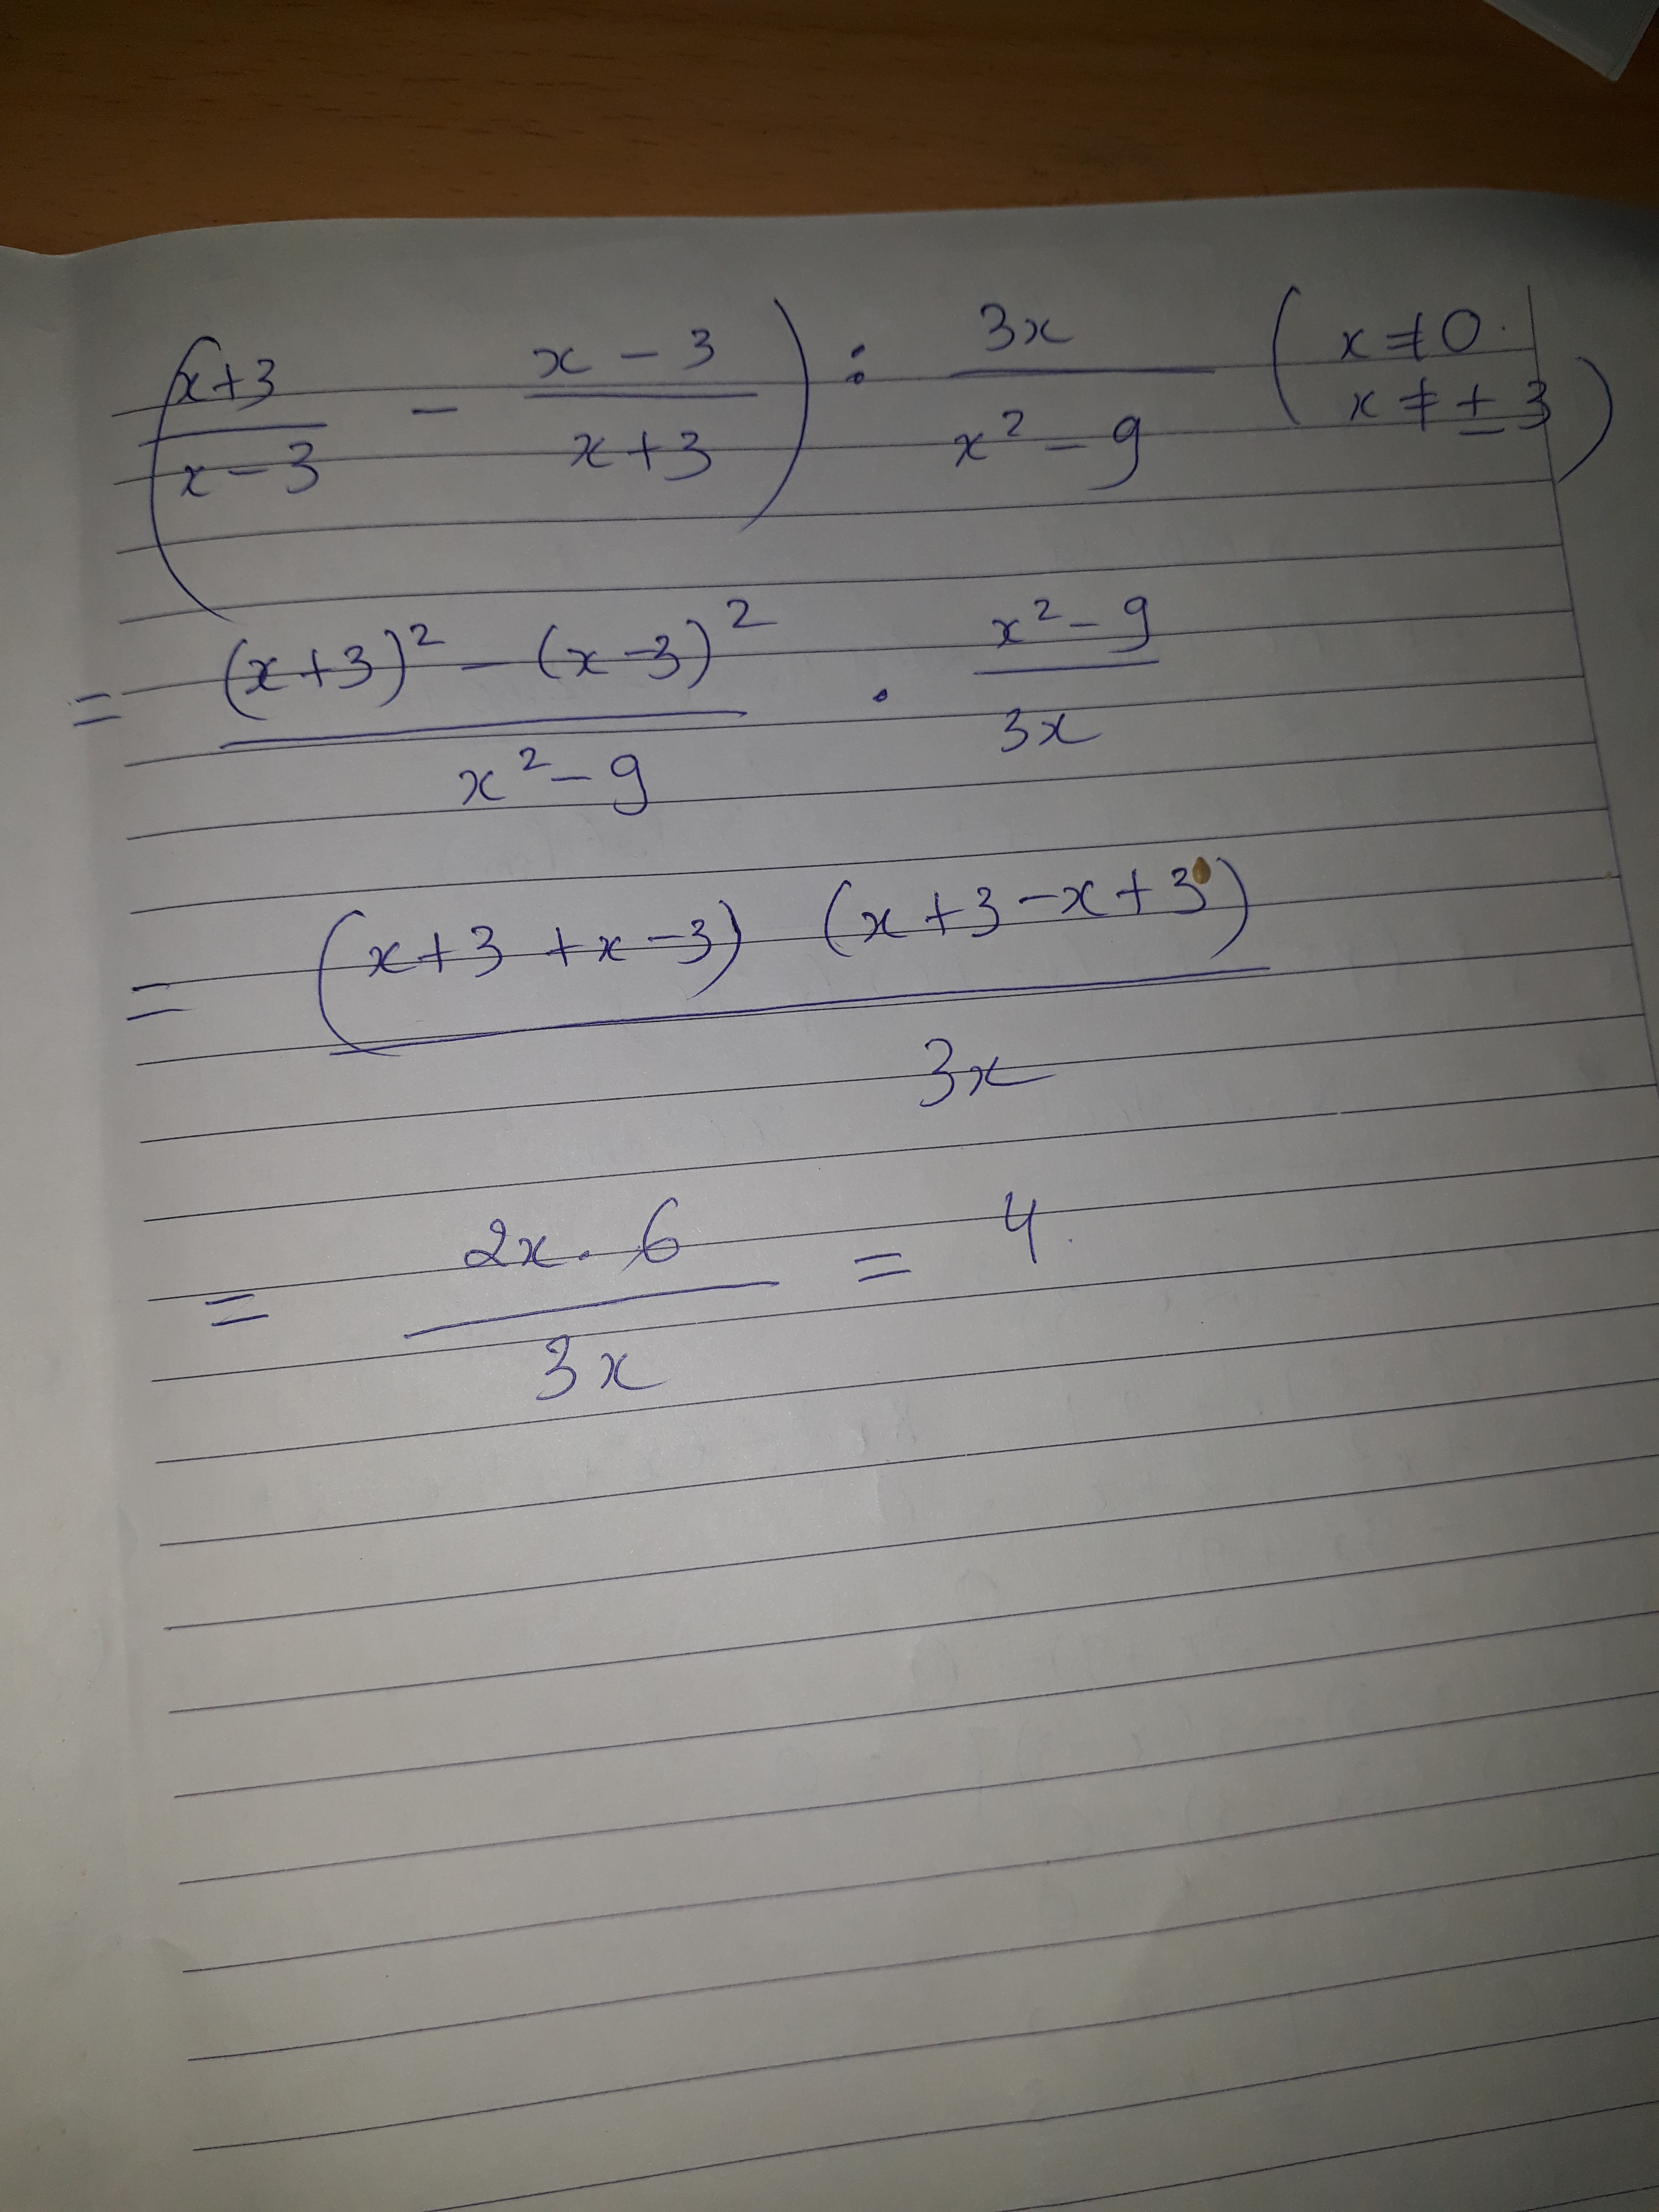 (x+3/x-3 - x-3/x+3) : 3x/x²-9 (x≠0. x≠±3)
= (x+3)² - (x-3)²/x²-9 . x²-9/3x
= (x+3+x-3) (x+3-x+3)/3x
= 2x.6/3x = 4.